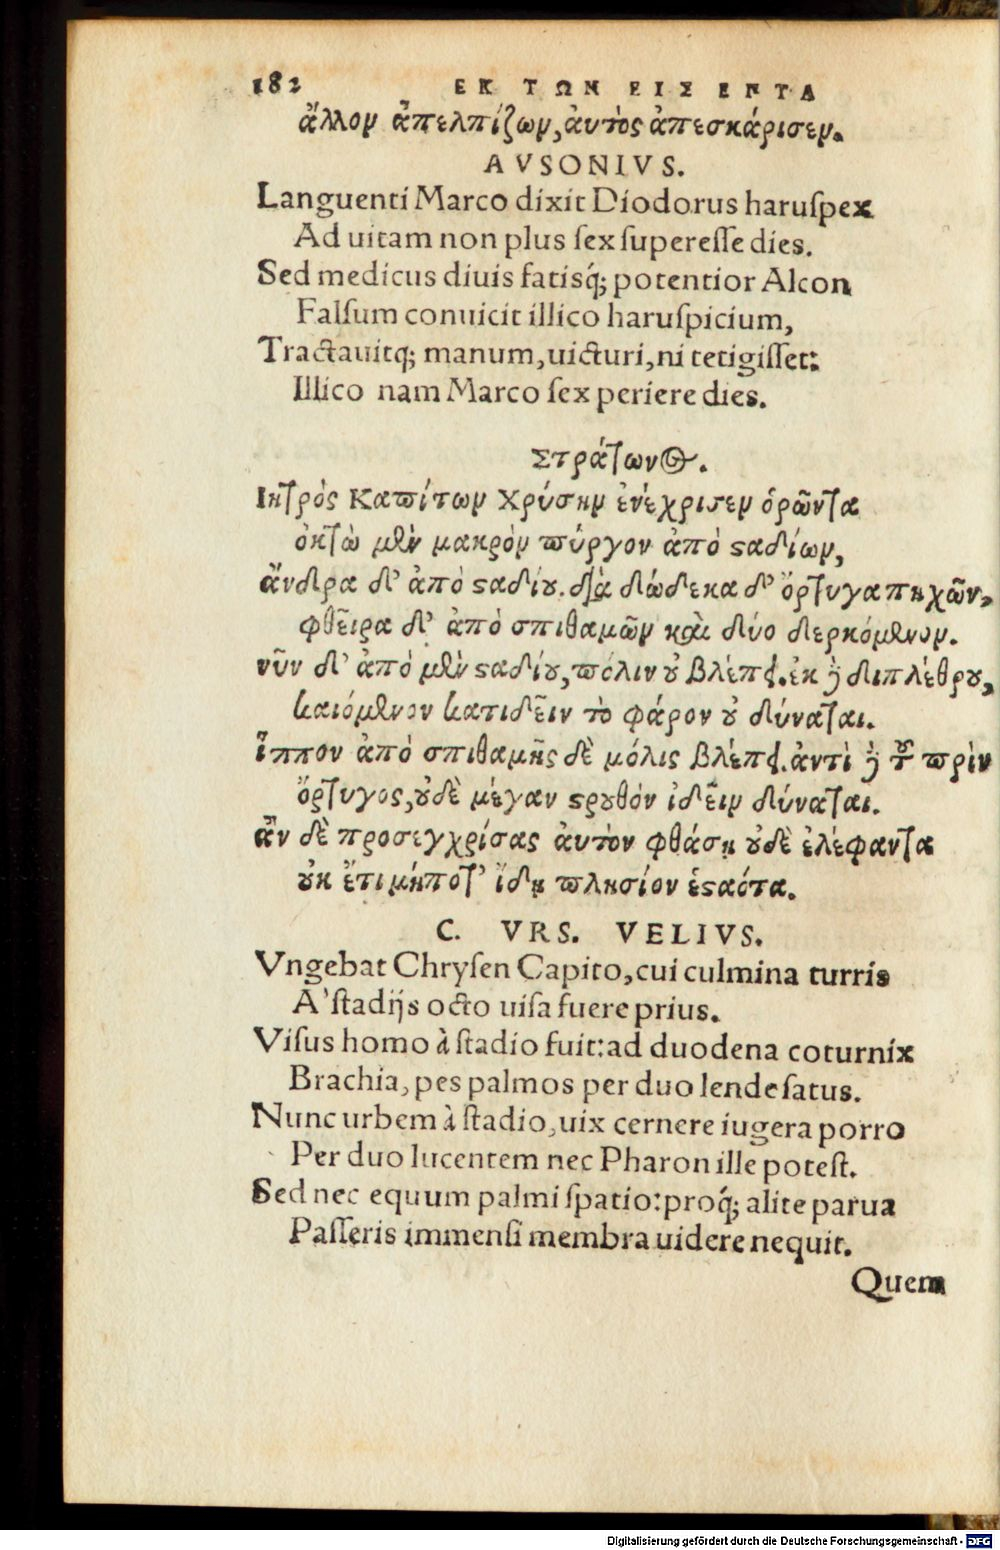 182 ΕΚ ΤΩΝ ΕΙΣ ΕΝΤΑ
ἄλλον ἀπελπίζων, ἀυτὸς ἀπεσκάρισεν.
AVSONIVS.
Languenti Marco dixit Diodorus haruſpex
Ad uitam non plus ſex ſupereſſe dies.
Sed medicus diuis fatisq́; potentior Alcon
Falſum conuicit illico haruſpicium,
Tractauitq; manum, uicturi, ni tetigiſſet:
Illico nam Marco ſex periere dies.
Στράτωνος.
Ιητρὸς Καπίτων Χρύσην ἐνέχρισεν ὁρῶντα
ὀκτὼ μὲν μακρὸν πύργον ἀπὸ ϛαδίων,
ἄνδρα δ' ἀπὸ ϛαδίου. διὰ δώδεκα δ' ὄρτυγα πηχῶν,
φθεῖρα δ' ἀπὸ σπιθαμῶν καὶ δύο δερκόμενον.
νῦν δ' ἀπὸ μὲν ϛαδίου, πόλιν οὐ βλέπει. ἐκ δὲ διπλέθρου,
καιόμενον κατιδεῖν τὸ φάρον οὐ δύναται.
ἵππον ἀπὸ σπιθαμῆς δὲ μόλις βλέπει. ἀντὶ δὲ τοῦ πρὶν
ὄρτυγος, οὐδὲ μέγαν ϛρουθὸν ἰδεῖν δύναται.
ἂν δὲ προσεγχρίσας ἀυτὸν φθάσῃ οὐδὲ ἐλέφαντα
οὐκ ἔτι μήποτ' ἴδῃ πλησίον ἑϛαότα.
C. VRS. VELIVS.
Vngebat Chryſen Capito, cui culmina turris
A' ſtadijs octo uiſa fuere prius.
Viſus homo à ſtadio fuit: ad duodena coturnix
Brachia, pes palmos per duo lende ſatus.
Nunc urbem à ſtadio, uix cernere iugera porro
Per duo lucentem nec Pharon ille poteſt.
Sed nec equum palmi ſpatio: proq́; alite parua
Paſſeris immenſi membra uidere nequit.
Quem
Digitalisierung gefördert durch die Deutsche Forschungsgemeinschaft - DFG